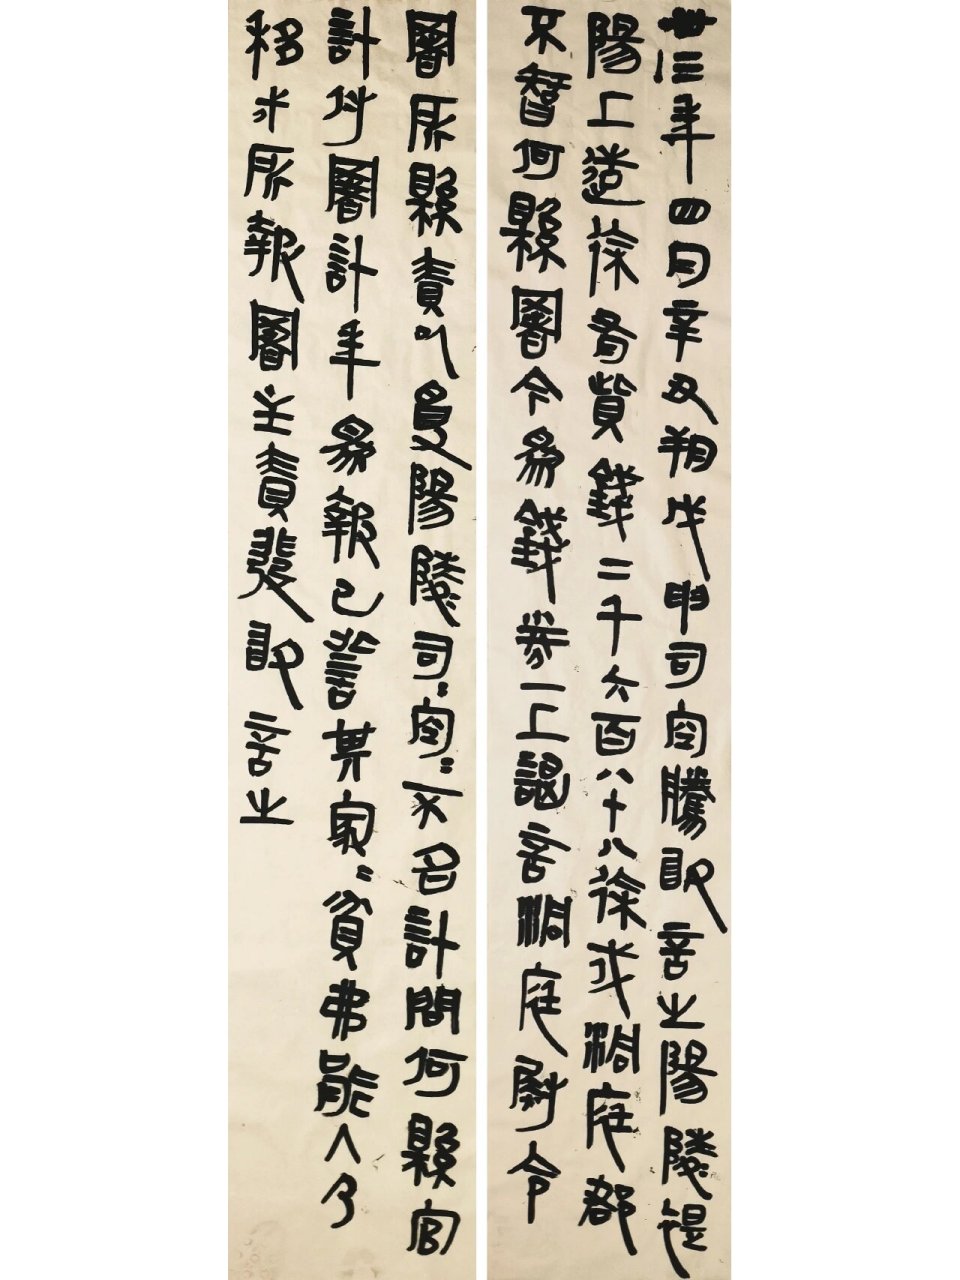 卅三年四月辛丑朔戊申司空騰敢言之陽陵禔
陽上造徐有貲錢二千六百八十八徐戍洞庭郡
不智何縣署今為錢券一上謁言洞庭尉令
署所縣責以受陽陵司=空=不名計問何縣官
計付署計年為報已訾其家=貧弗能入乃
移戍所報署主責發敢言之